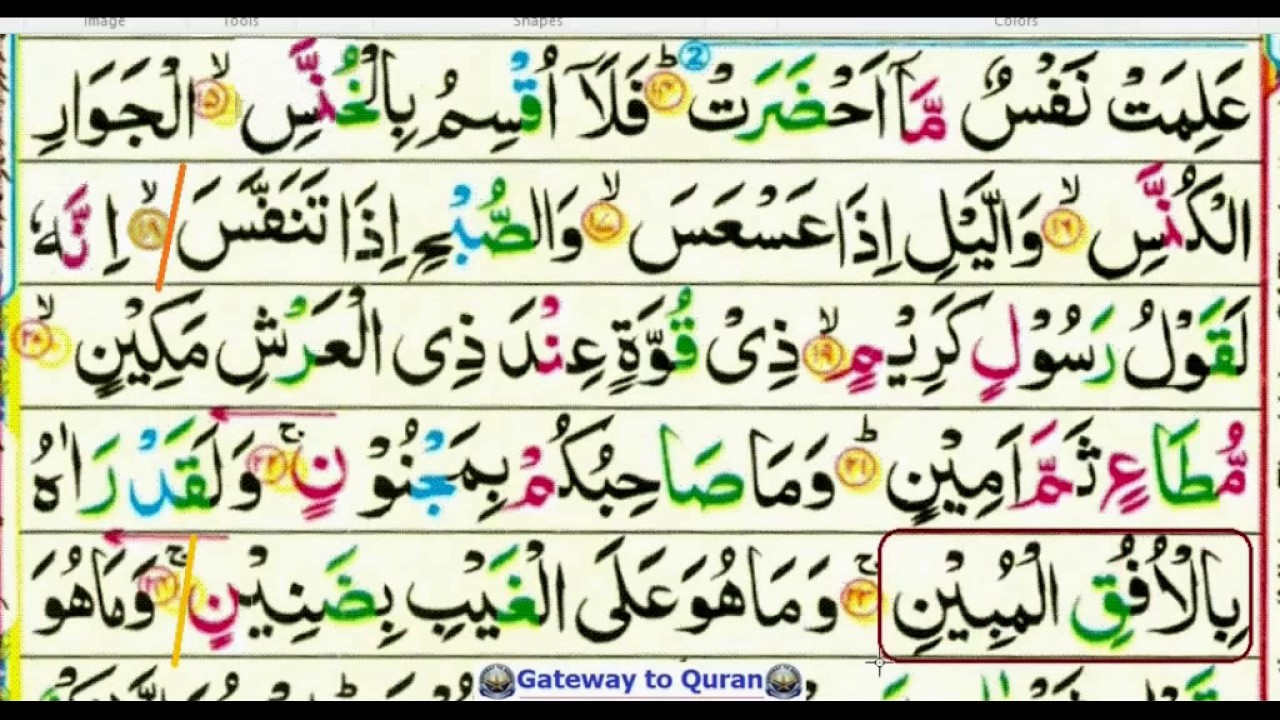 Image Tools Shapes Colors
عَلِمَتْ نَفْسٌ مَّاۤ اَحْضَرَتْ ؕ ﴿۱۴﴾ 2 فَلَاۤ اُقْسِمُ بِالْخُنَّسِ ۙ ﴿۱۵﴾ الْجَوَارِ
الْكُنَّسِ ۙ ﴿۱۶﴾ وَالَّيْلِ اِذَا عَسْعَسَ ۙ ﴿۱۷﴾ وَالصُّبْحِ اِذَا تَنَفَّسَ ۙ ﴿۱۸﴾ اِنَّهٗ
لَقَوْلُ رَسُوْلٍ كَرِيْمٍ ۙ ﴿۱۹﴾ ذِىْ قُوَّةٍ عِنْدَ ذِى الْعَرْشِ مَكِيْنٍ ۙ ﴿۲۰﴾
مُّطَاعٍ ثَمَّ اَمِيْنٍ ؕ ﴿۲۱﴾ وَمَا صَاحِبُكُمْ بِمَجْنُوْنٍ ۚ ﴿۲۲﴾ وَلَقَدْ رَاٰهُ
بِالْاُفُقِ الْمُبِيْنِ ۚ ﴿۲۳﴾ وَمَا هُوَ عَلَى الْغَيْبِ بِضَنِيْنٍ ۚ ﴿۲۴﴾ وَمَا هُوَ
Gateway to Quran